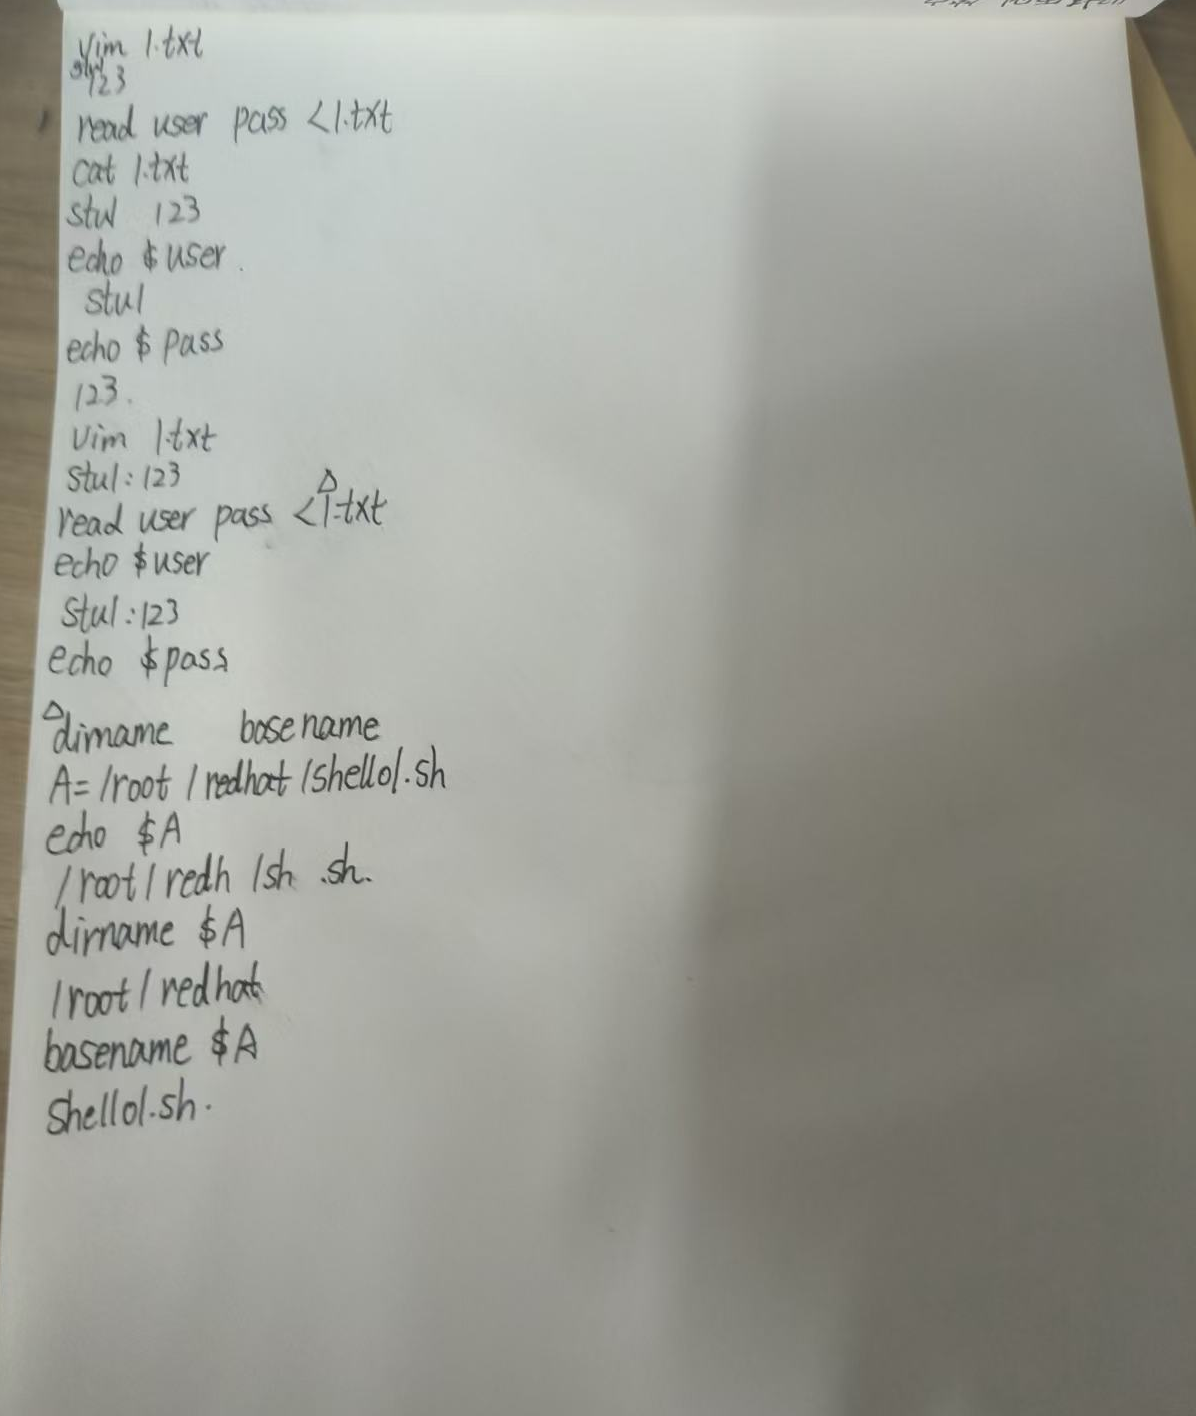 vim 1.txt
stu1
123
read user pass <1.txt
cat 1.txt
stu1 123
echo $user.
stu1
echo $pass
123.
vim 1.txt
stu1:123
read user pass <1.txt
echo $user
stu1:123
echo $pass
dirname basename
A=/root/redhat/shell01.sh
echo $A
/root/redh/sh .sh.
dirname $A
/root/redhat
basename $A
shell01.sh.